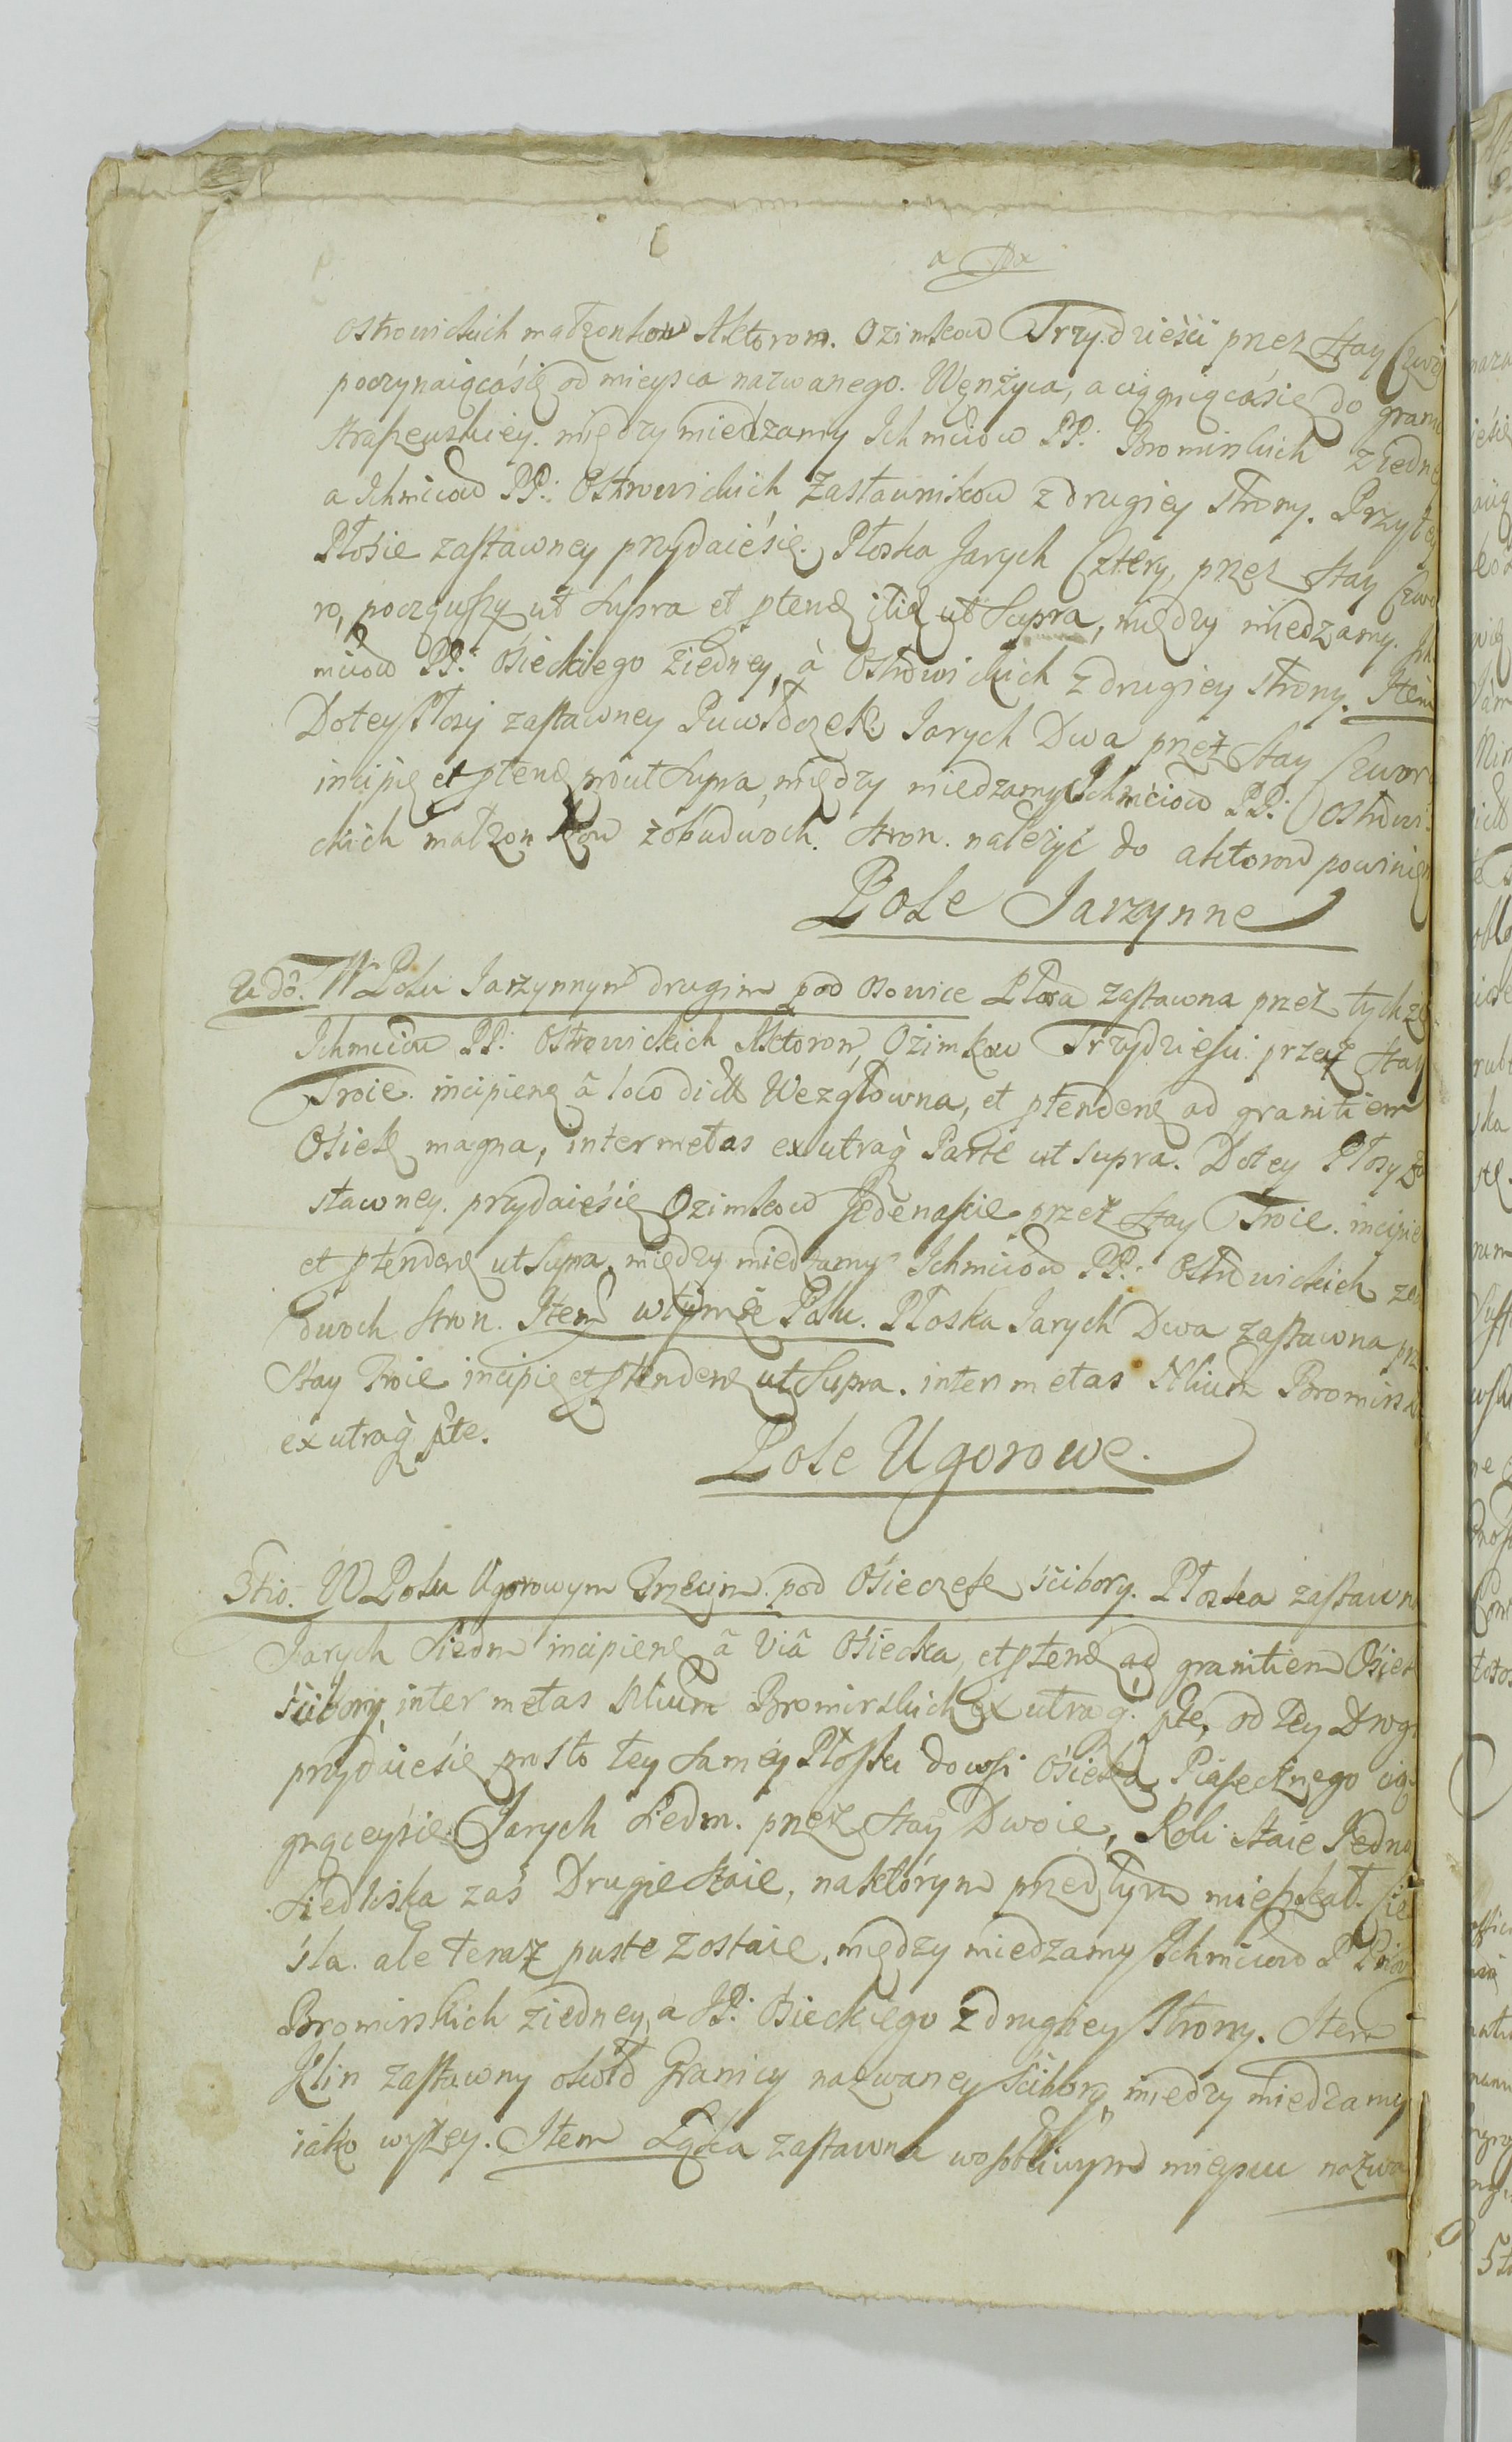 Ostrowickich małzonkow Aktorow. Ozimkow Trzydzieści przez Stay Czwo
poczynaiącasię od mieysca nazwanego. Wężyca, a ciągnącasię do grani
Straszewskiey. między miedzamy Ichmciow PP: Bromirskich z iedne
a Ichmciow PP: Ostrowickich Zastawnikow z drugiey strony. Przy tey
Płosie zastawney przydaieśię. Płoska Jarych Cztery, przez Stay Czwo
ro, począwszy ut Supra et ptenę itię ut Supra, między miedzamy. Ich
mciow PP: Ośieckiego ziedney, à Ostrowickich z drugiey strony. Item
Do tey Płosy zastawney Puwłoczek Jarych Dwa przez Stay Czwor
incipię et ptenę prout Supra, między miedzamy Ichmciow PP: Ostrowi
ckich małzonkow zobudwoch. Stron. należyć do aktorow powinię
Pole Jarzynne
2dô. W Polu Jarzynnym drugim pod Osowice Płosa zastawna przez tychze
Ichmciow PP: Ostrowickich Aktorow, Ozimkow Trzydzieści przez Stay
Troie. incipienę â loco dictô Wezgłowna, et ptendenę ad granitiem
Ośiek magna, inter metas ex utraq̀ Parte ut supra. Do tey Płosy Za
stawney. przydaieśię Ozimkow Jedenaście przez Stay Troie. incipie
et ptendenę ut Supra, między miedzamy Ichmciow PP: Ostrowickich zo
dwoch Stron. Item w tymże Polu. Płoska Jarych Dwa zastawna prz
Stay Troie incipię et ptendenę ut Supra. inter metas Nlium Bromirs
ex utraq̀ pte.
Pole Ugorowe.
3tio. W Polu Ugorowym Trzecim. pod Ośieczek ścibory. Płoska zastawn
Jarych Siedm incipienę â Viâ Ośiecka, et ptenę ad granitiem Ośiek
ścibory, inter metas Nlium Bromirskich ex utraq̀. pte, od tey Drogi
przydaieśię prosto tey Samey Płosku do wsi Ośieka Piasecznego cią
gnąceysię Jarych Siedm. przez Stay Dwoie, Roli Staie Jedno
Siedliska zaś Drugie Staie, na którym przed tym mieszkał. Cie
śla. ale teraz puste zostaie, między miedzamy Ichmciow P
Bromirskich ziedney, a JP: Ośieckiego z drugiey Strony. Item
Klin zastawny około Granicy nazwaney ścibory między miedzamy
iako wyżey. Item Łąka zastawna w osobliwym mieyscu nazwa